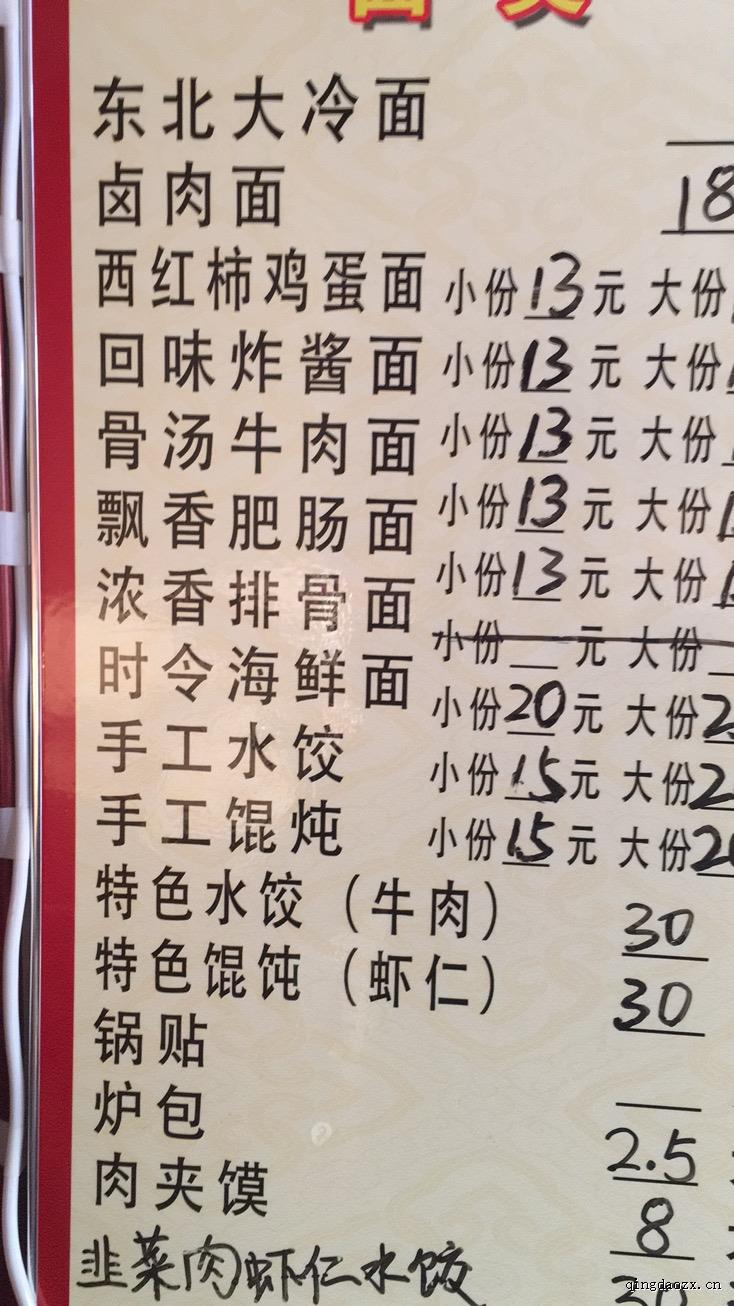 东北大冷面
卤肉面 18
西红柿鸡蛋面 小份13元 大份
回味炸酱面 小份13元 大份
骨汤牛肉面 小份13元 大份
飘香肥肠面 小份13元 大份
浓香排骨面 小份13元 大份
小份__元 大份__
时令海鲜面 小份20元 大份
手工水饺 小份15元 大份
手工馄炖 小份15元 大份
特色水饺（牛肉） 30
特色馄饨（虾仁） 30
锅贴
炉包 2.5
肉夹馍 8
韭菜肉虾仁水饺 30
qingdaozx.cn